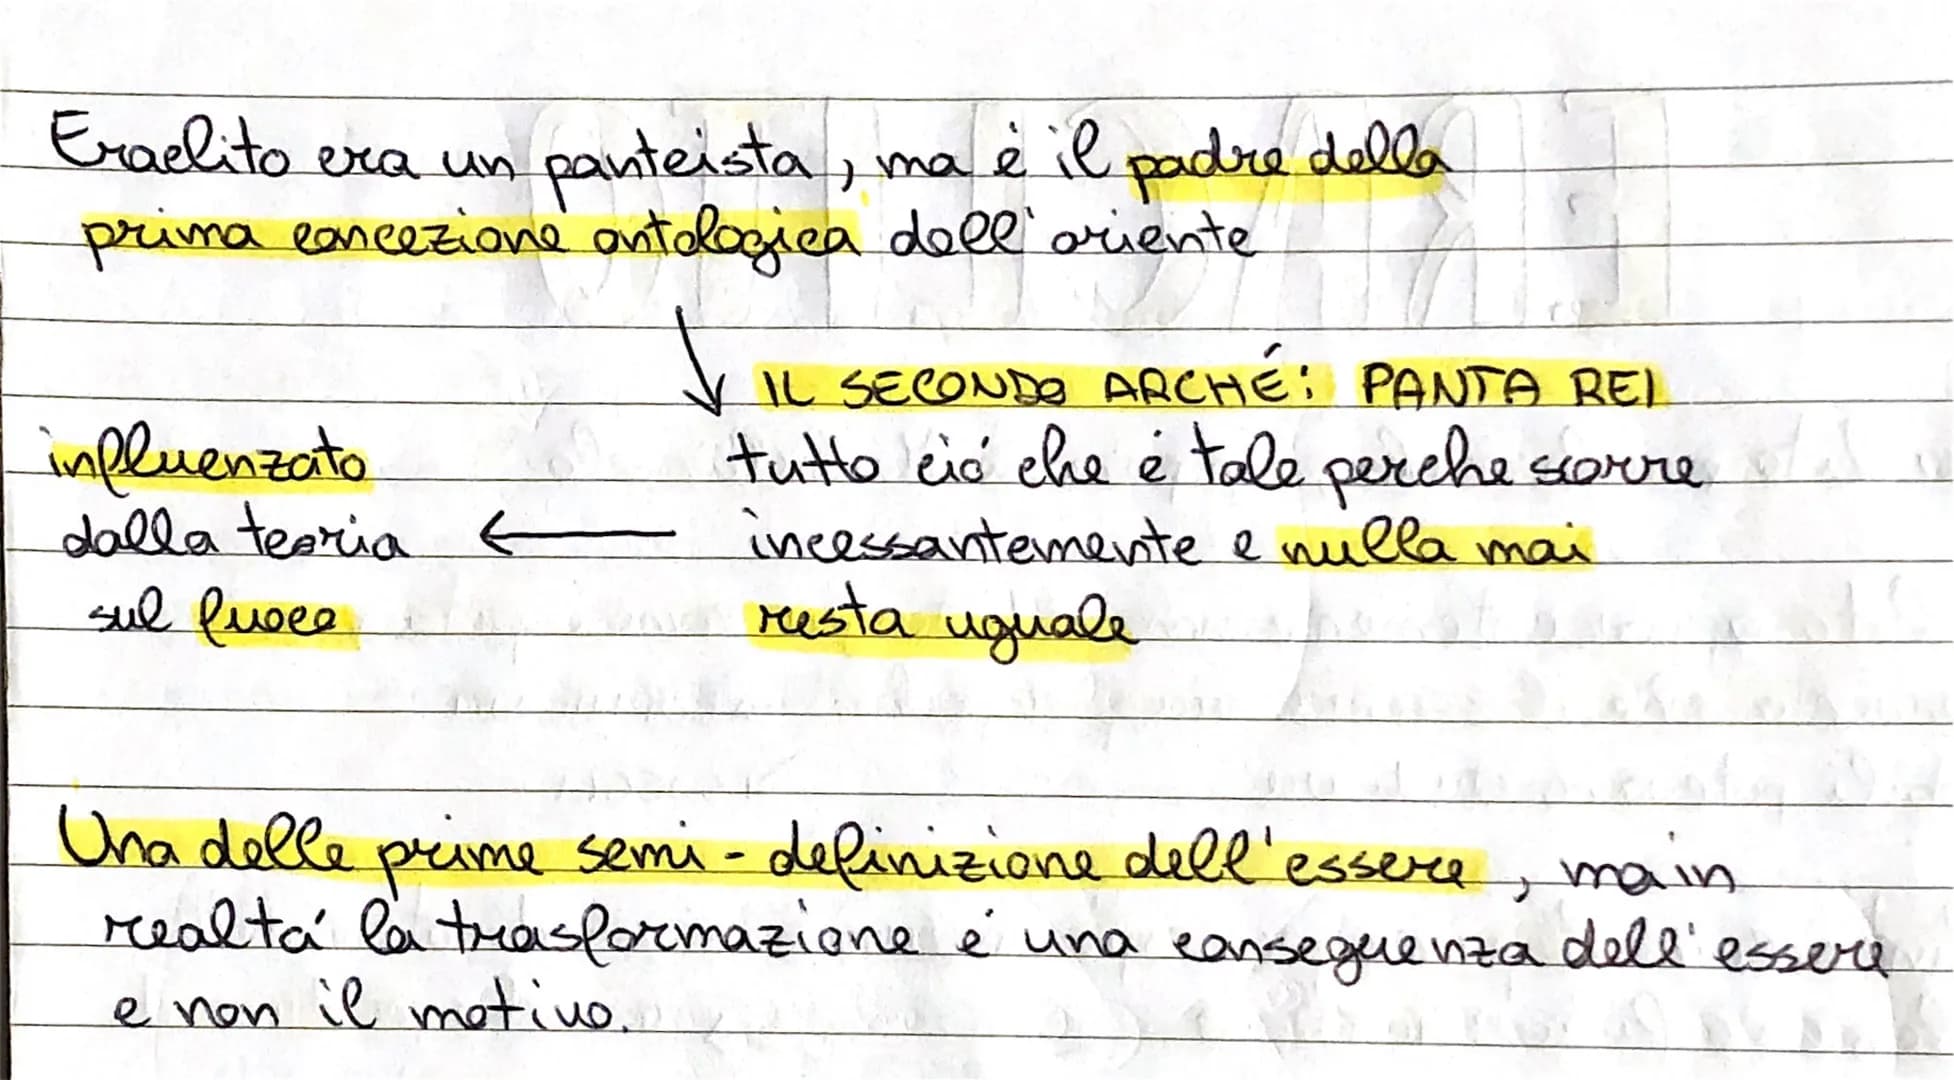 Eraclito era un panteista, ma é il padre della
prima concezione ontologica dell'oriente
IL SECONDO ARCHÉ: PANTA REI
influenzato
dalla teoria
sul fuoco
tutto ció che é tale perche scorre
incessantemente e nulla mai
resta uguale
Una delle prime semi-definizione dell'essere, ma in
realtá la trasformazione é una conseguenza dell'essere
e non il motivo.